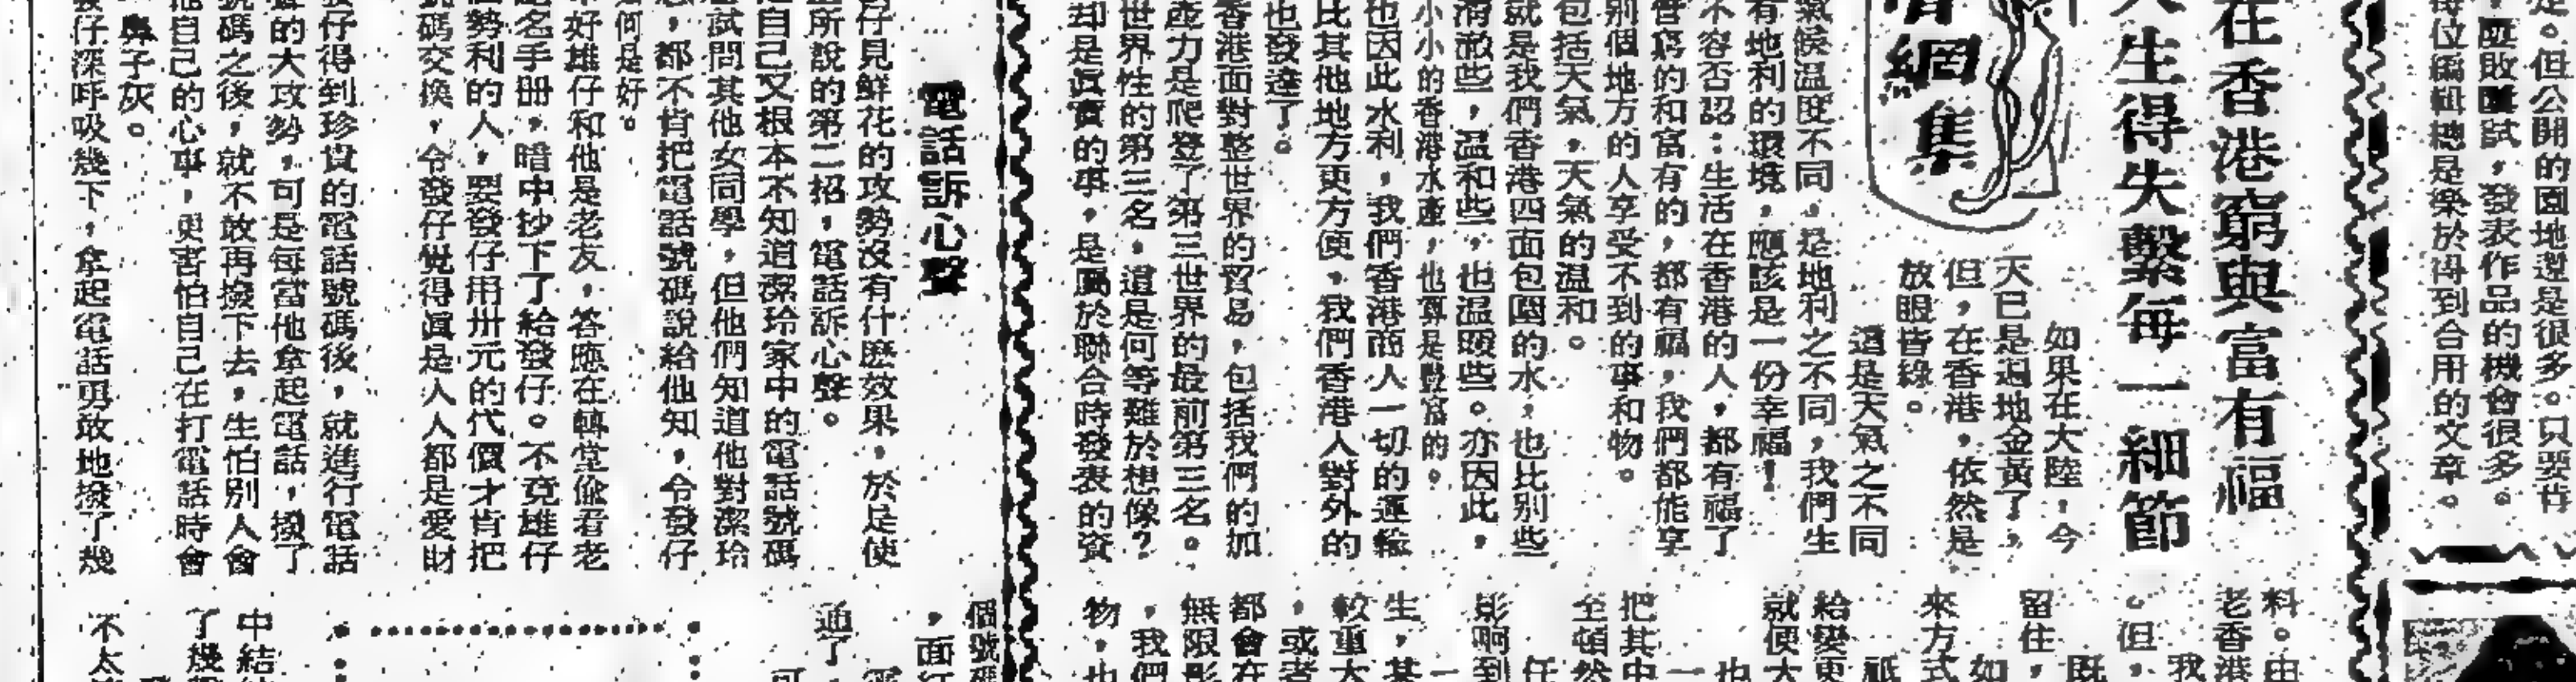 是。但公開的園地還是很多。只要肯
，屢敗屢試，發表作品的機會很多。
每位編輯總是樂於得到合用的文章。
在香港窮與富有福
人生得失繫每一細節
網集
如果在大陸，今
天已是遍地金黃了，
但，在香港，依然是
放眼皆綠。
這是天氣之不同
氣候温度不同，是地利之不同，我們生
有地利的環境，應該是一份幸福！
不容否認：生活在香港的人，都有福了
管窮的和富有的，都有福，我們都能享
別個地方的人享受不到的事和物。
包括天氣，天氣的温和。
就是我們香港四面包圍的水，也比別些
清澈些，温和些，也温暖些。亦因此，
小小的香港水產，也算是豐富的。
也因此水利，我們香港商人一切的運輸
比其他地方更方便，我們香港人對外的
也發達了。
香港面對整世界的貿易，包括我們的加
產力是爬登了第三世界的最前第三名。
世界性的第三名，這是何等難於想像？
却是眞實的事，是屬於聯合時發表的資
料。由
老香港
我
。但，
既
留住，
如
來方式
祗
給變更
就便大
也
一
把其中
全頓然
任
影响到
一
生，甚
較重大
，或者
都會在
無限影
，我們
物，也
電話訴心聲
仔見鮮花的攻勢沒有什麽效果，於是使
所說的第二招，電話訴心聲。
自己又根本不知道潔玲家中的電話號碼
試問其他女同學，但他們知道他對潔玲
，都不肯把電話號碼說給他知，令發仔
如何是好。
好雄仔和他是老友，答應在轉堂偸看老
名手册，暗中抄下了給發仔。不竟雄仔
勢利的人，要發仔用卅元的代價才肯把
號碼交換，令發仔覺得眞是人人都是愛財
發仔得到珍貴的電話號碼後，就進行電話
的大攻勢，可是每當他拿起電話，撥了
號碼之後，就不敢再撥下去，生怕別人會
他自己的心事，更害怕自己在打電話時會
鼻子灰。
發仔深呼吸幾下，拿起電話勇敢地撥了幾
個號碼
，面紅
通了，
可
中結結
了幾
不太